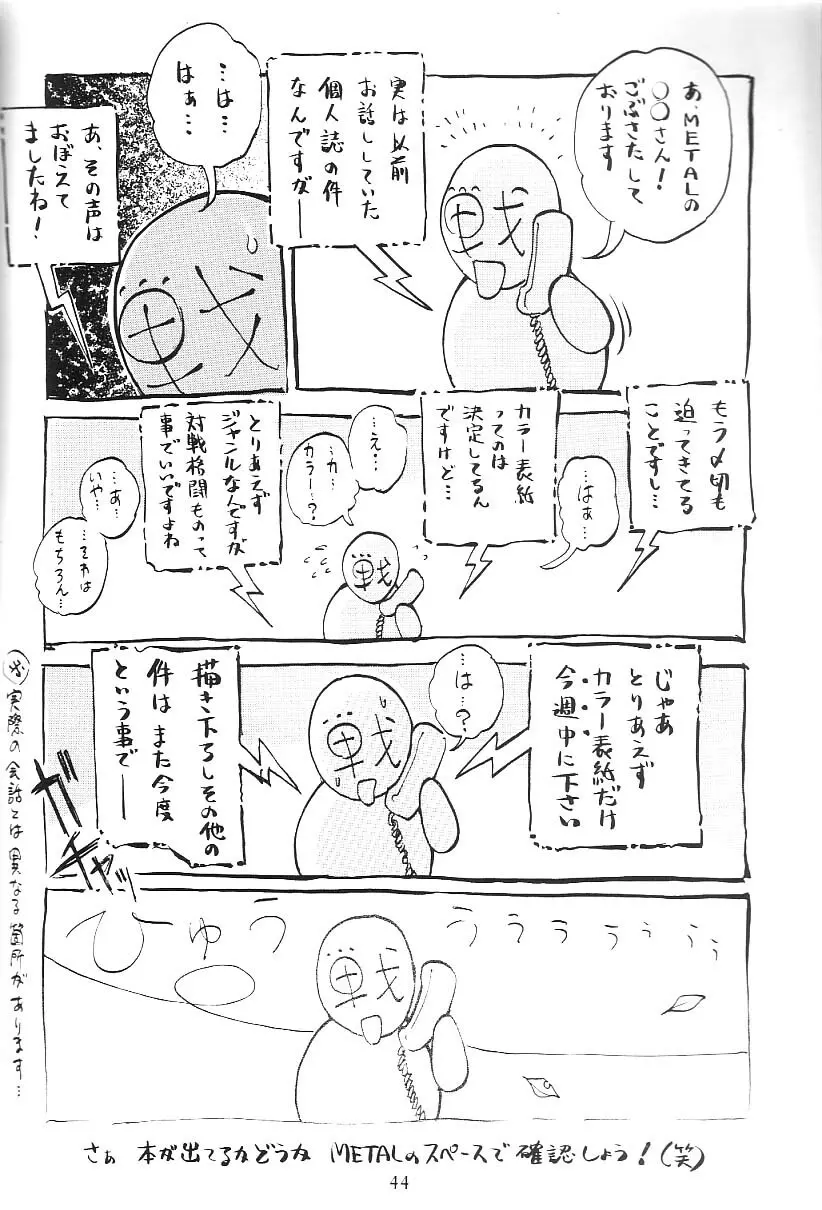 あ、METALの
○○さん!
ごぶさたして
おります
実は以前
お話ししていた
個人誌の件
なんですがー
…は…
はぁ…
あ、その声は
おぼえて
ましたね!
もう〆切も
迫ってきてる
ことですし…
…はぁ…
カラー表紙
ってのは
決定してるん
ですけど…
…え…
…カ…
カラー…?
とりあえず
ジャンルなんですが
対戦格闘ものって
事でいいですよね
…あ…
いや…
…それは
もちろん…
じゃあ
とりあえず
カラー表紙だけ
今週中に下さい
…は…?
描き下ろしその他の
件はまた今度
という事でー
ガチャッ
ひゅううううぅぅぅぅ
戦
戦
戦
戦
戦
※実際の会話とは異なる箇所があります…
さぁ 本が出てるかどうか METALのスペースで確認しよう!(笑)
44